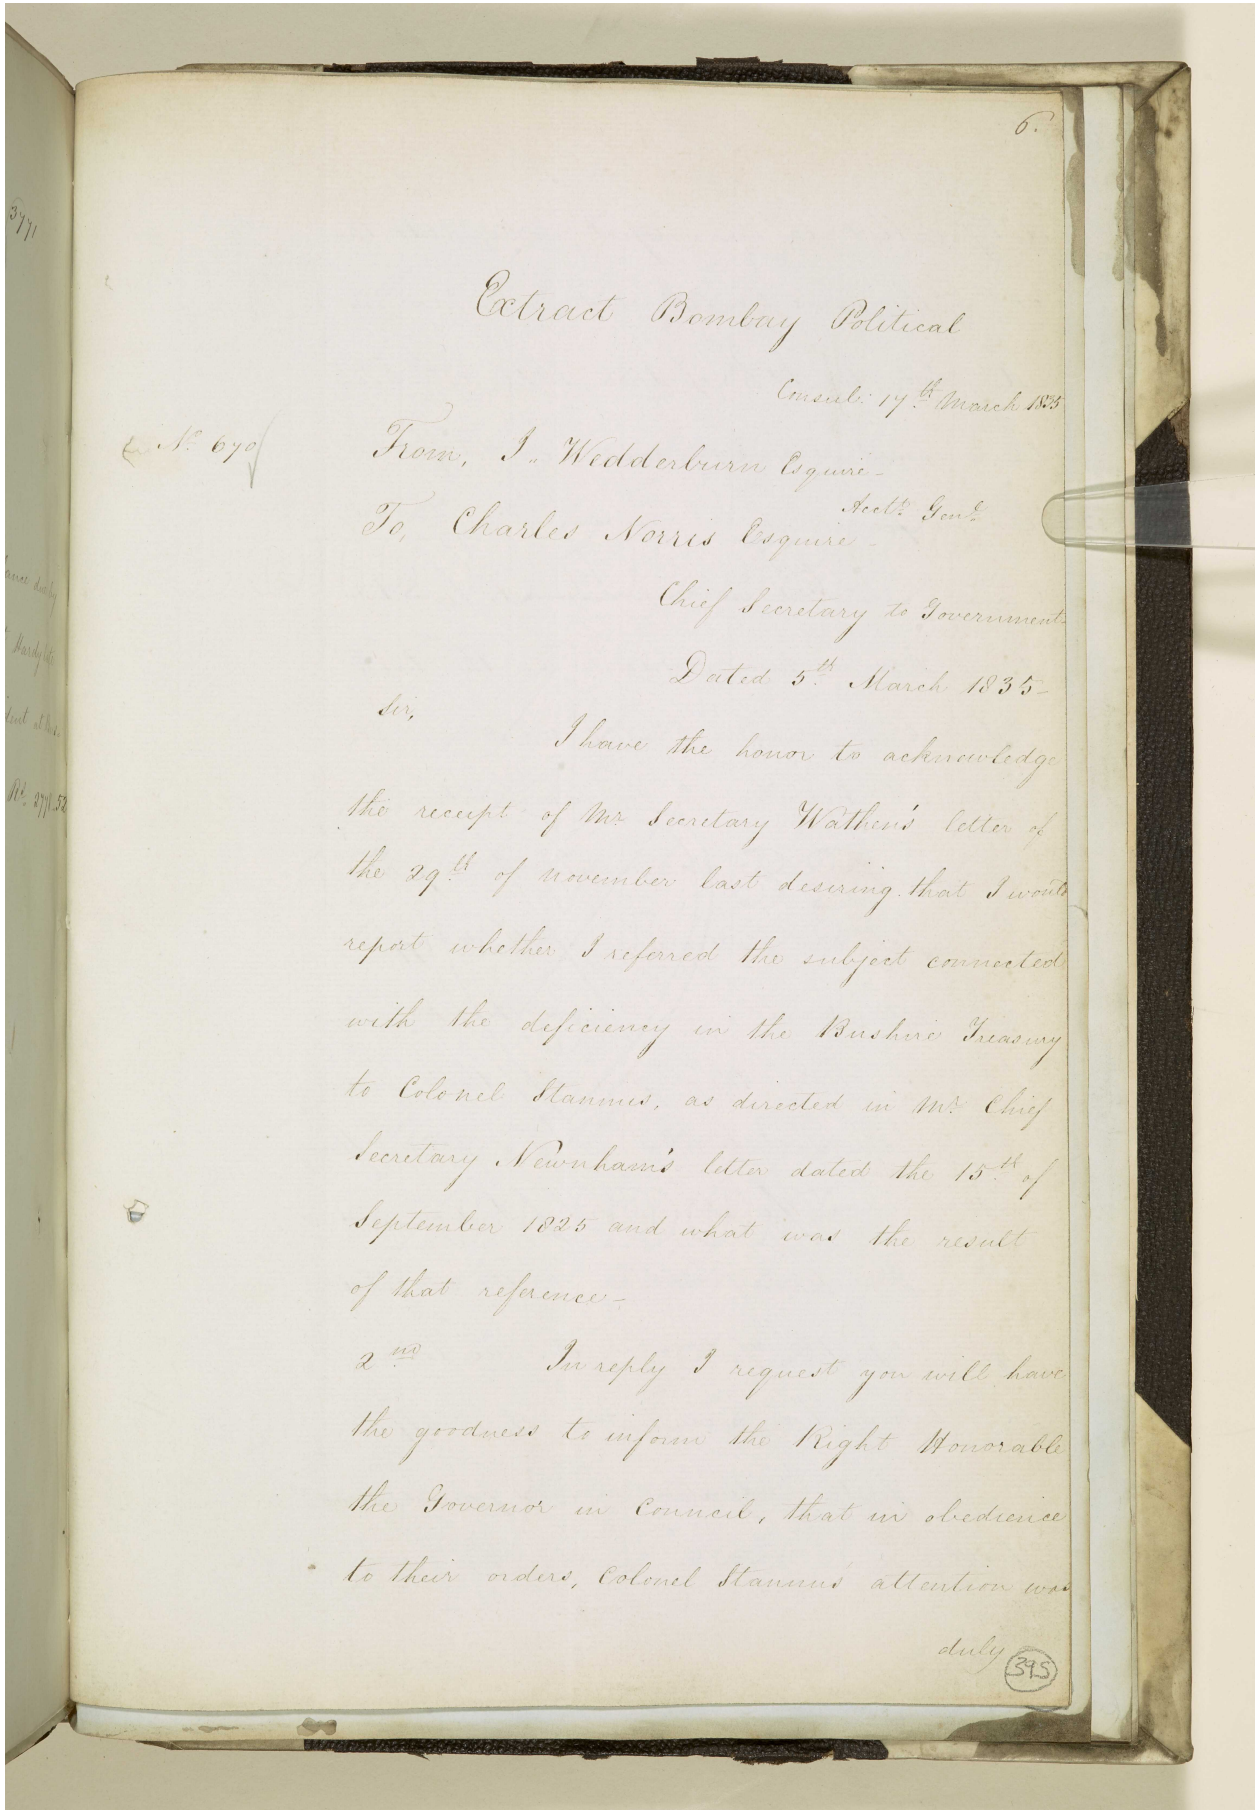 6.
3771
Extract Bombay Political
Consul: 17th March 1835
No. 670
From, J. Wedderburn Esquire
Acctt. Genl.
To, Charles Norris Esquire
Chief Secretary to Government
Dated 5th March 1835
Sir,
I have the honor to acknowledge
the receipt of Mr. Secretary Wathen's letter of
the 29th of November last desiring that I would
report whether I referred the subject connected
with the deficiency in the Bushire Treasury
to Colonel Stannus, as directed in Mr. Chief
Secretary Newnham's letter dated the 15th of
September 1825 and what was the result
of that reference
2nd In reply I request you will have
the goodness to inform the Right Honorable
the Governor in Council, that in obedience
to their orders, Colonel Stannus' attention was
duly
395
Hardy
Rs. 2771.52